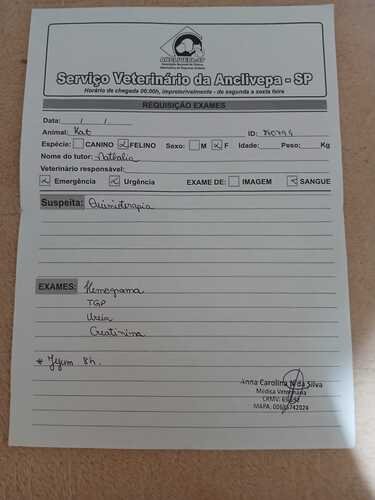 ANCLIVEPA-SP
Serviço Veterinário da Anclivepa - SP
Horário de chegada 06:00h, impreterivelmente - de segunda a sexta feira
REQUISIÇÃO EXAMES
Data: / /
Animal: Kat ID:
Espécie: CANINO FELINO Sexo: M F Idade: Peso: Kg
Nome do tutor: Nathalia
Veterinário responsável:
Emergência Urgência EXAME DE: IMAGEM SANGUE
Suspeita: Quimioterapia
EXAMES: Hemograma
TGP
Ureia
Creatinina
* Jejum 8h.
Anna Carolina N da Silva
Médica Veterinária
CRMV:
MAPA: